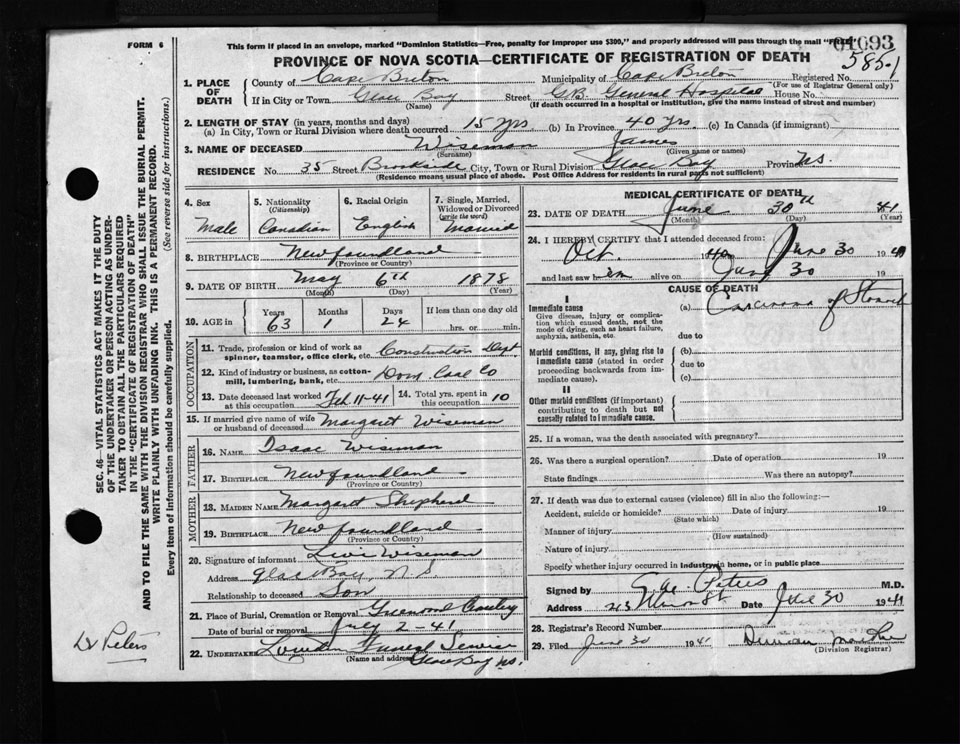 FORM 6
This form if placed in an envelope, marked "Dominion Statistics—Free, penalty for improper use $300," and properly addressed will pass through the mail "Free"
01093
PROVINCE OF NOVA SCOTIA—CERTIFICATE OF REGISTRATION OF DEATH
585-1
1. PLACE OF DEATH
County of Cape Breton Municipality of Cape Breton Registered No.
(For use of Registrar General only)
If in City or Town Glace Bay Street G.B. General Hospital House No.
(Name) (If death occurred in a hospital or institution, give the name instead of street and number)
2. LENGTH OF STAY (in years, months and days)
(a) In City, Town or Rural Division where death occurred 15 yrs (b) In Province 40 yrs. (c) In Canada (if immigrant)
3. NAME OF DECEASED Wiseman James
(Surname) (Given name or names)
RESIDENCE No. 35 Street Brookside City, Town or Rural Division Glace Bay Province N.S.
(Residence means usual place of abode. Post Office Address for residents in rural parts not sufficient)
4. Sex 5. Nationality (Citizenship) 6. Racial Origin 7. Single, Married, Widowed or Divorced (write the word)
Male Canadian English Married
8. BIRTHPLACE Newfoundland
(Province or Country)
9. DATE OF BIRTH May 6th 1878
(Month) (Day) (Year)
10. AGE in Years Months Days If less than one day old
63 1 24 hrs. or min.
OCCUPATION
11. Trade, profession or kind of work as spinner, teamster, office clerk, etc. Construction Dept
12. Kind of industry or business, as cotton-mill, lumbering, bank, etc. Dom. Coal Co
13. Date deceased last worked at this occupation Feb 11-41 14. Total yrs. spent in this occupation 10
15. If married give name of wife or husband of deceased Margaret Wiseman
FATHER
16. NAME Isaac Wiseman
17. BIRTHPLACE Newfoundland
(Province or Country)
MOTHER
18. MAIDEN NAME Margaret Shepherd
19. BIRTHPLACE Newfoundland
(Province or Country)
20. Signature of informant Levi Wiseman
Address Glace Bay, N.S.
Relationship to deceased Son
21. Place of Burial, Cremation or Removal Greenwood Cemetery
Date of burial or removal July 2-41
22. UNDERTAKER Funeral Service
(Name and address) Glace Bay N.S.
MEDICAL CERTIFICATE OF DEATH
23. DATE OF DEATH June 30th 41
(Month) (Day) (Year)
24. I HEREBY CERTIFY that I attended deceased from:
Oct. 1940 June 30 1941
and last saw h im alive on June 30 19
CAUSE OF DEATH
I
Immediate cause (a) Carcinoma of Stomach
Give disease, injury or complication which caused death, not the mode of dying, such as heart failure, asphyxia, asthenia, etc.
due to
Morbid conditions, if any, giving rise to immediate cause (stated in order proceeding backwards from immediate cause).
(b)
due to
(c)
II
Other morbid conditions (if important) contributing to death but not causally related to immediate cause.
25. If a woman, was the death associated with pregnancy?
26. Was there a surgical operation? Date of operation 19
State findings Was there an autopsy?
27. If death was due to external causes (violence) fill in also the following:—
Accident, suicide or homicide? Date of injury 19
(State which)
Manner of injury
(How sustained)
Nature of injury
Specify whether injury occurred in industry, in home, or in public place
Signed by Peters M.D.
Address Date June 30 1941
28. Registrar's Record Number
29. Filed June 30 1941 Duncan
(Division Registrar)
SEC. 46—VITAL STATISTICS ACT MAKES IT THE DUTY
OF THE UNDERTAKER OR PERSON ACTING AS UNDER-
TAKER TO OBTAIN ALL THE PARTICULARS REQUIRED
IN THE "CERTIFICATE OF REGISTRATION OF DEATH"
AND TO FILE THE SAME WITH THE DIVISION REGISTRAR WHO SHALL ISSUE THE BURIAL PERMIT.
WRITE PLAINLY WITH UNFADING INK. THIS IS A PERMANENT RECORD.
Every item of information should be carefully supplied. (See reverse side for instructions.)
Dr Peters